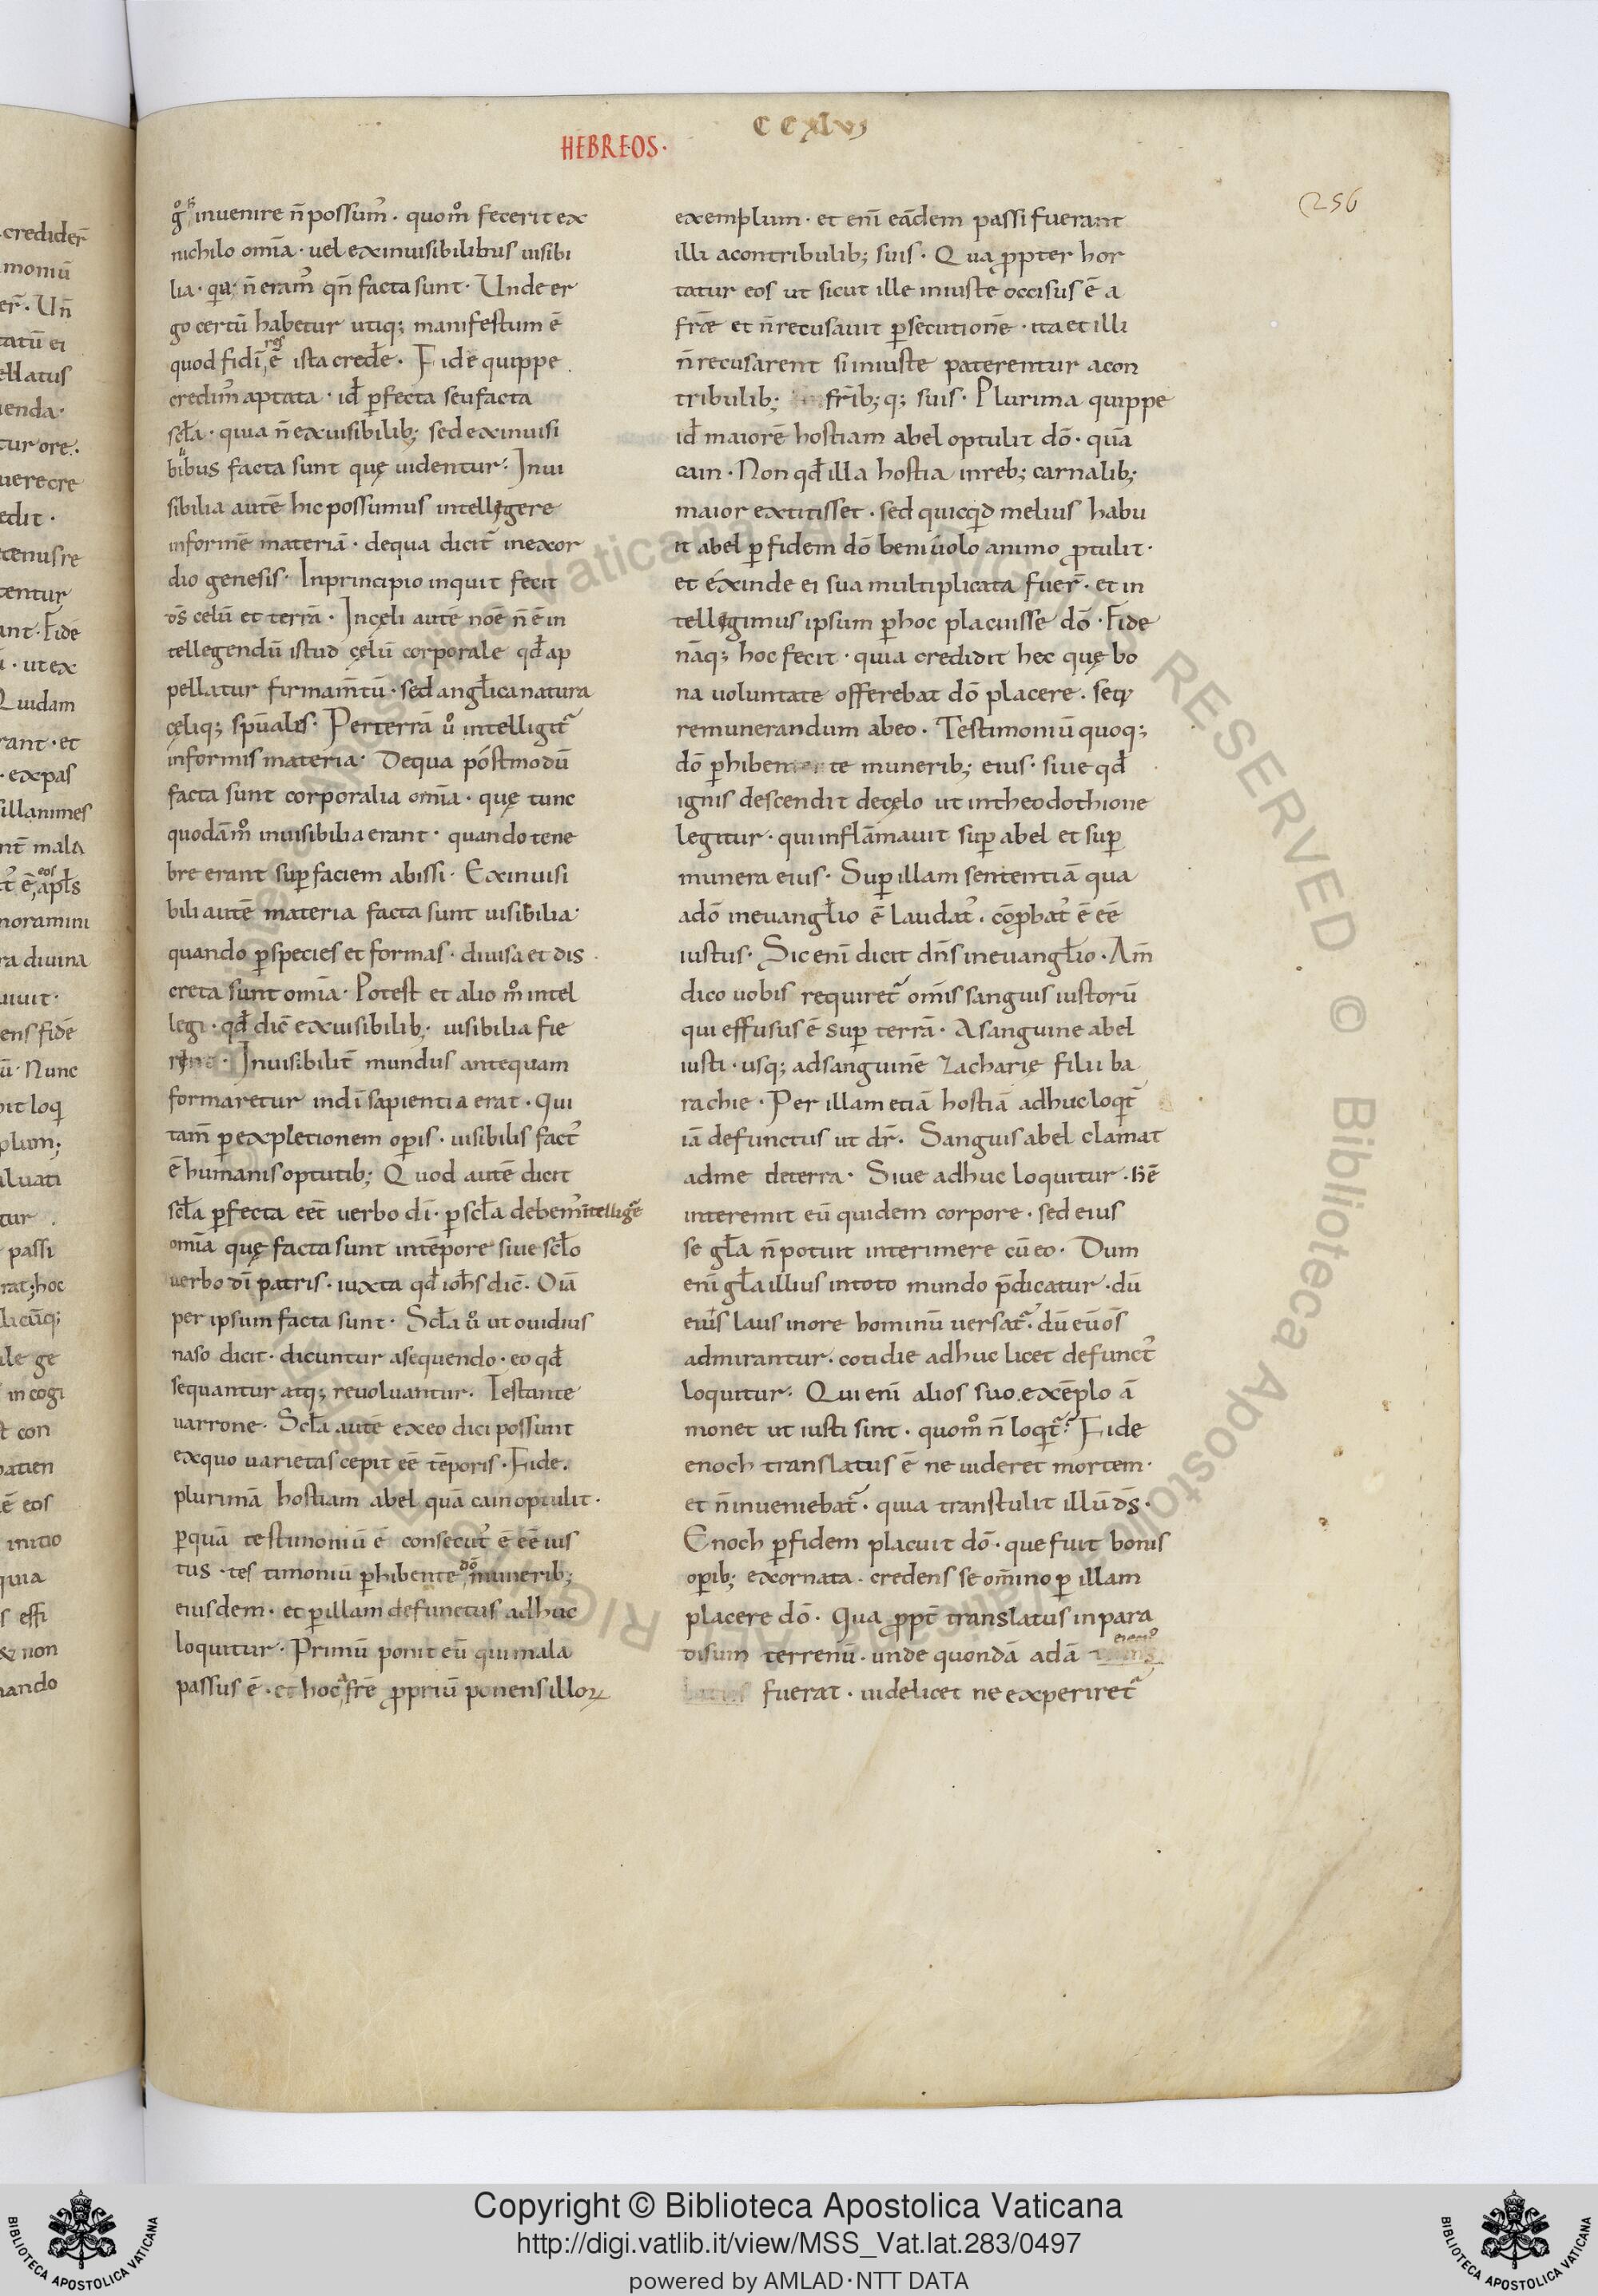 CCXLVI
HEBREOS·
256
inuenire n̄ possum᷒· quom̊ fecerit ex
nichilo om̄ia· uel exinuisibilibus uisibi
lia· quia n̄ eram᷒ qn̄ facta sunt· Unde er
go certū habetur utiq; manifestum ē
quod fidī res ē ista credēe· Fide quippe
credim᷒ aptata· id̄ ꝑfecta seu facta
scl̄a· quia n̄ exuisibilib; sed exinuisi
bilibus facta sunt quę uidentur· Inui
sibilia autē hic possumus intellegere
informē materiā· dequa dicit᷑ inexor
dio genesis· Inprincipio inquit fecit
d̄s celū et terrā· Incęli autē noē n̄ ē in
tellegendū istud cęlū corporale qd̄ ap
pellatur firmam̄tū· sed angl̄ica natura
cęliq; spūales· Perterrā ů intelligit᷑
informis materia· Dequa póstmodū
facta sunt corporalia om̄ia· quę tunc
quodām̊ inuisibilia erant· quando tene
bre erant suꝑ faciem abissi· Exinuisi
bili autē materia facta sunt uisibilia·
quando ꝑ species et formas· diuisa et dis
creta sunt om̄ia· Potest et alio m̊ intel
legi· qd̄ dic̄ exuisibilib; uisibilia fie
Inuisibilit᷑ mundus antequam
formaretur indī sapientia erat· Qui
tam̄ ꝑ expletionem oꝑis· uisibilis fact᷒
ē humanis optutib; Quod autē dicit
scl̄a ꝑfecta eēt uerbo dī· ꝑ scl̄a debem᷒ intelligēe
om̄ia quę facta sunt intēpore siue scl̄o
uerbo dī patris· iuxta qd̄ ioh̄s dic̄· Oīa
per ipsum facta sunt· Scl̄a ů ut ouidius
naso dicit· dicuntur asequendo· eo qd̄
sequantur atq; reuoluantur· Testante
uarrone· Scl̄a autē exeo dici possunt
exquo uarietas cepit eē tēporis· Fide·
plurimā hostiam abel quā cain optulit·
ꝑquā testimoniū ē consecut᷒ ē eē ius
tus· testimoniū ꝑhibente dō munerib;
eiusdem· et ꝑ illam defunctus adhuc
loquitur· Primū ponit eū qui mala
passus ē· et hoc a fr̄e ꝓpriū ponens illoꝝ
exemplum· et enī eādem passi fuerant
illi acontribulib; suis· Qua ꝓpter hor
tatur eos ut sicut ille iniuste occisus ē a
frāe et n̄ recusauit ꝑsecutionē· ita et illi
n̄ recusarent si iniuste paterentur acon
tribulib; fr̄ib; q; suis· Plurima quippe
id̄ maiorē hostiam abel optulit dō· quā
cain· Non qd̄ illa hostia inreb; carnalib;
maior extitisset· sed quicqid melius habu
it abel ꝑ fidem dō beniuolo animo ꝓtulit·
et éxinde ei sua multiplicata fuer̄· et in
tellegimus ipsum ꝑ hoc placuisse dō· Fide
nāq; hoc fecit· quia credidit hec quę bo
na uoluntate offerebat dō placere· seq;
remunerandum abeo· Testimoniū quoq;
dō ꝑhibente munerib; eius· siue qd̄
ignis descendit decęlo ut intheodothione
legitur· qui inflāmauit suꝑ abel et suꝑ
munera eius· Suꝑ illam sententiā qua
adō ineuangl̄io ē laudat᷒· cōꝓbat᷒ ē eē
iustus· Sic enī dicit dn̄s ineuangl̄io· Am̄
dico uobis requiret᷑ om̄is sanguis iustorū
qui effusus ē suꝑ terrā· A sanguine abel
iusti· usq; adsanguinē zacharię filii ba
rachie· Per illam etiā hostiā adhuc loqit᷑
iā defunctus ut dr̄· Sanguis abel clamat
adme deterra· Siue adhuc loquitur·
interemit eū quidem corpore· sed eius
se gl̄a n̄ potuit interimere cū eo· Dum
enī gl̄a illius intoto mundo p̄dicatur· dū
eius laus inore hominū uersat᷑· dū eū om̄s
admirantur· cotidie adhuc licet defunct᷒
loquitur· Qui enī alios suo exēplo ā
monet ut iusti sint· quom̊ n̄ loqit᷑? Fide
enoch translatus ē ne uideret mortem·
et n̄ inueniebat᷑· quia transtulit illū d̄s·
Enoch ꝑ fidem placuit dō· que fuit bonis
oꝑib; exornata· credens se om̄ino ꝑ illam
placere dō· Qua ꝓpt̄ translatus inpara
disum terrenū· unde quondā adā eiect᷒
fuerat· uidelicet ne experiret᷑
credider̄
moniū
er̄· Un̄
tatū ei
ellatus
enda·
tur ore·
uere cre
edit·
tenus re
tentur
ant· Fide
· ut ex
Quidam
rant· et
· expas
sillanimes
nt̄ mala
ē eos apl̄s
moramini
ra diuina
uiuit·
ens fidē
ū· Nunc
bit loq
plum;
aluati
tur
passi
rat; hoc
licūq;
ale ge
in cogi
t con
patien
ē eos
initio
quia
s effi
& non
nando
Copyright © Biblioteca Apostolica Vaticana
http://digi.vatlib.it/view/MSS_Vat.lat.283/0497
powered by AMLAD·NTT DATA
BIBLIOTECA APOSTOLICA VATICANA
BIBLIOTECA APOSTOLICA VATICANA